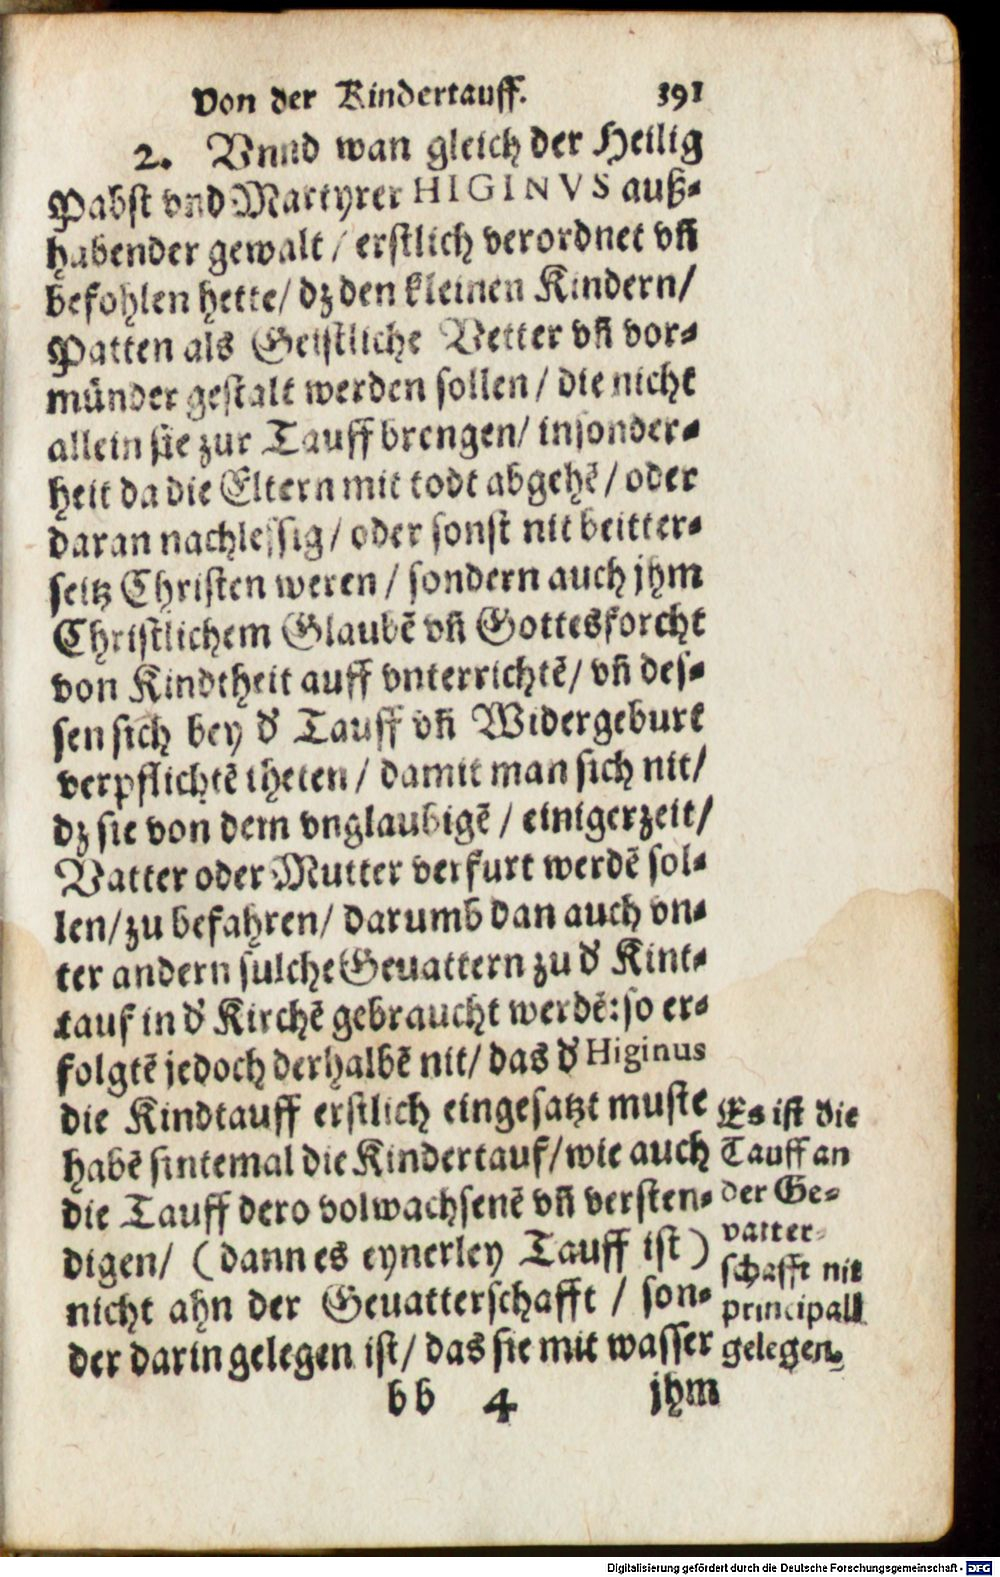 Von der Kindertauff. 391
2. Vnnd wan gleich der Heilig
Pabst vnd Martyrer HIGINVS auß-
habender gewalt / erstlich verordnet vñ
befohlen hette / dz den kleinen Kindern /
Patten als Geistliche Vetter vñ vor-
münder gestalt werden sollen / die nicht
allein sie zur Tauff brengen / insonder-
heit da die Eltern mit todt abgehẽ / oder
daran nachlessig / oder sonst nit beitter-
seitz Christen weren / sondern auch jhm
Christlichem Glaubẽ vñ Gottesforcht
von Kindtheit auff vnterrichtẽ / vñ des-
sen sich bey d' Tauff vñ Widergeburt
verpflichtẽ theten / damit man sich nit /
dz sie von dem vnglaubigẽ / einigerzeit /
Vatter oder Mutter verfurt werdẽ sol-
len / zu befahren / darumb dan auch vn-
ter andern sulche Geuattern zu d' Kint-
tauf in d' Kirchẽ gebraucht werdẽ: so er-
folgtẽ jedoch derhalbẽ nit / das d' Higinus
die Kindtauff erstlich eingesatzt muste
habẽ sintemal die Kindertauf / wie auch
die Tauff dero volwachsenẽ vñ versten-
digen / (dann es eynerley Tauff ist)
nicht ahn der Geuatterschafft / son-
der darin gelegen ist / das sie mit wasser
Es ist die
Tauff an
der Ge-
vatter-
schafft nit
principall
gelegen.
bb 4 jhm
Digitalisierung gefördert durch die Deutsche Forschungsgemeinschaft - DFG